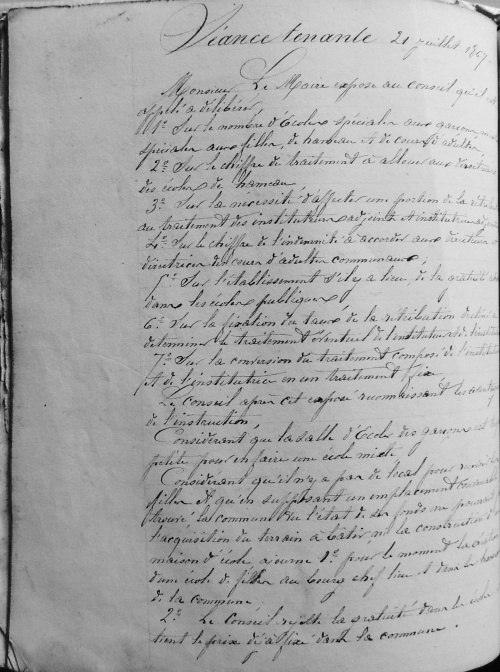 Séance tenante 21 juillet 1867
Monsieur Le Maire expose au conseil qu'il est
appelé à délibérer,
1º Sur le nombre d'Ecoles spéciales aux garçons,
spéciales aux filles, de hameau et de cours d'adultes
2º Sur le chiffre de traitement à allouer aux directeurs
des écoles de hameau
3º Sur la necessité d'affecter une portion de la
au traitement des instituteurs adjoints et institutrices
4º Sur le chiffre de l'indemnité à accorder aux directeurs
directrices des cours d'adultes communaux;
5º Sur l'établissement s'il y a lieu de la gratuité
dans les écoles publiques
6º Sur la fixation du taux de la retribution
déterminer le traitement éventuel de l'instituteur
7º Sur la conversion du traitement composé de l'instituteur
et de l'institutrice en un traitement fixe
Le Conseil après cet exposé reconnaissant les avantages
de l'instruction,
Considérant que la salle d'Ecole des garçons est trop
petite pour en faire une école mixte
Considérant qu'il n'y a pas de local pour
filles et qu'en supposant un emplacement
la commune vu l'état de ses fonds ne pouvant
l'acquisition du terrain à bâtir ni la construction d'
maison d'école, ajourne 1º pour le moment la création
d'une école de filles au bourg chef lieu et dans le
de la commune,
2º Le Conseil rejette la gratuité dans les écoles
tient le prix déjà fixé dans la commune.